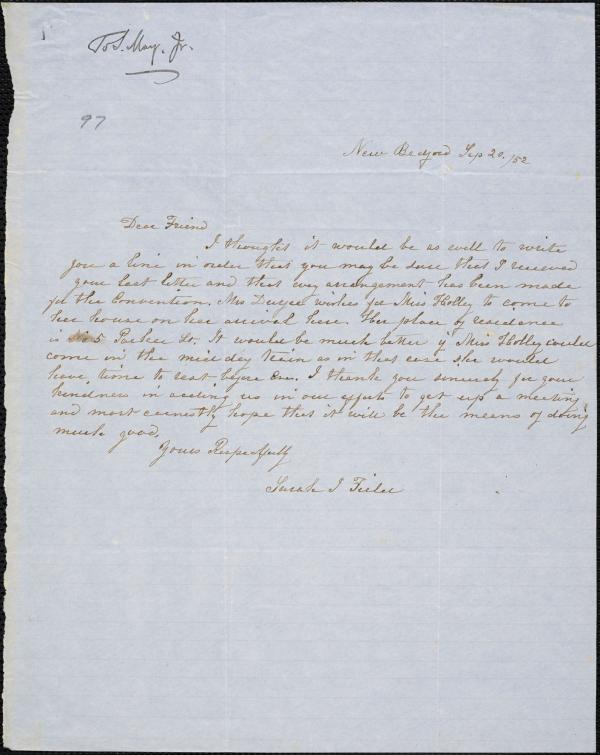 To S. May, Jr.
97
New Bedford Sep 20./52
Dear Friend
I thought it would be as well to write
you a line in order that you may be sure that I received
your last letter and that every arrangement has been made
for the Convention. Mrs Durfee wishes for Miss Holly to come to
her house on her arrival here. Her place of residence
is No 5 Parker St. It would be much better if Miss Holley could
come in the mid day train as in that case she would
have time to rest before Eve. I thank you sincerely for your
kindness in aiding us in our efforts to get up a meeting
and most earnestly hope that it will be the means of doing
much good.
Yours Respectfully
Sarah J Field